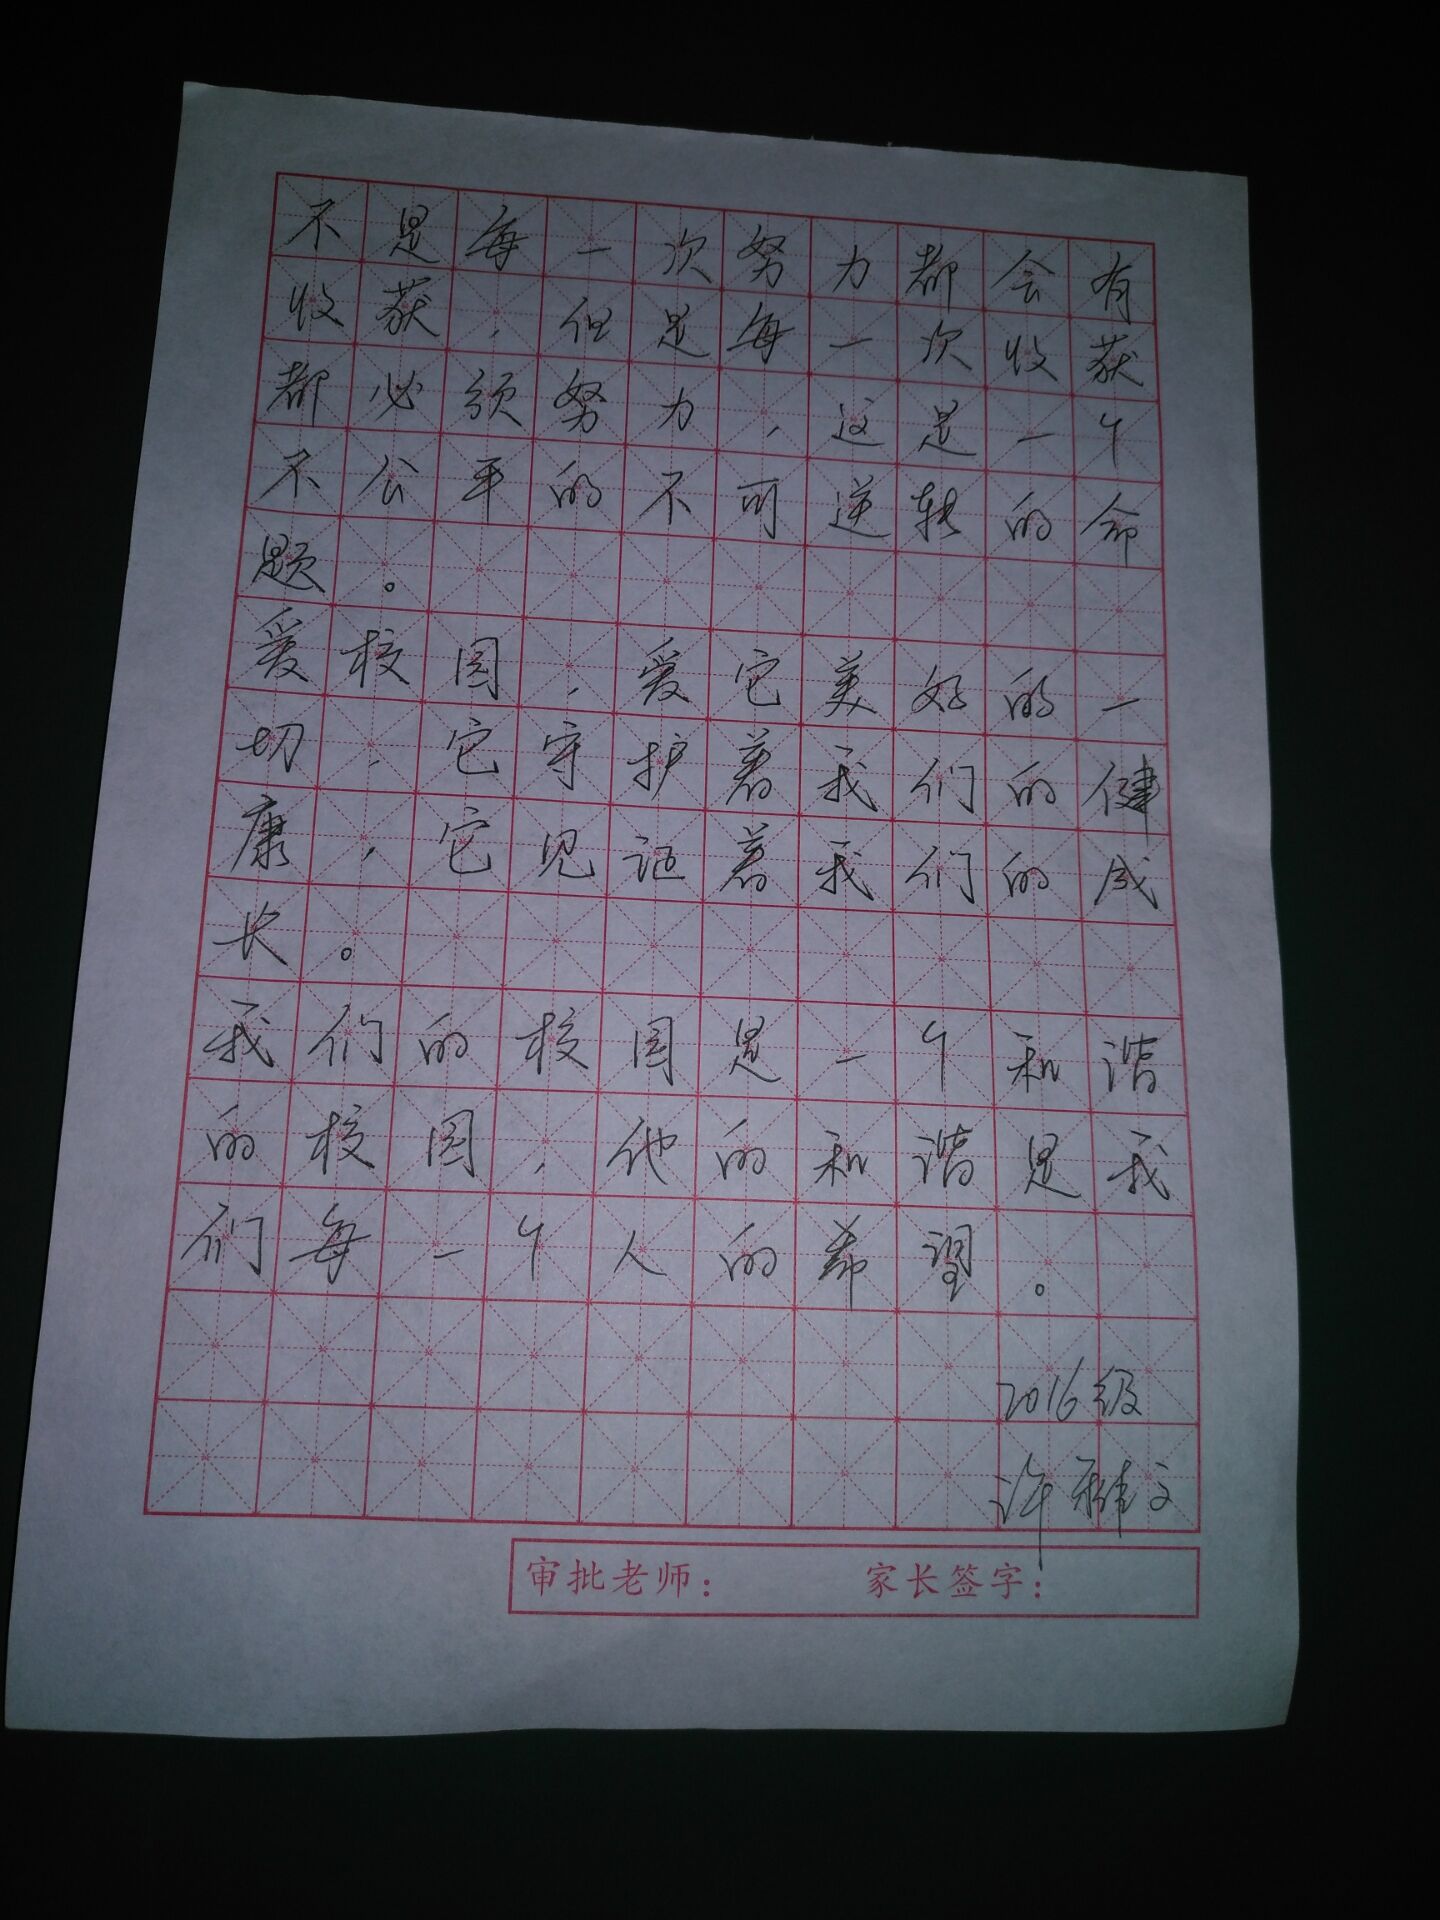 不是每一次努力都会有
收获，但是每一次收获
都必须努力，这是一个
不公平的不可逆转的命
题。
爱校园，爱它美好的一
切，它守护着我们的健
康，它见证着我们的成
长。
我们的校园是一个和谐
的校园，他的和谐是我
们每一个人的希望。
2016级
许雅文
审批老师： 家长签字：